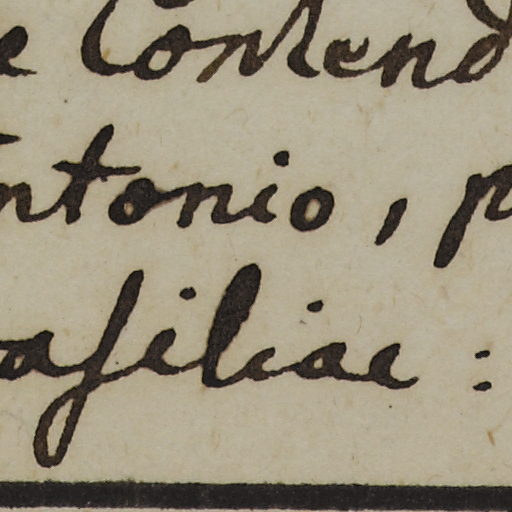 e Contend
ntonio, p
asiliae: